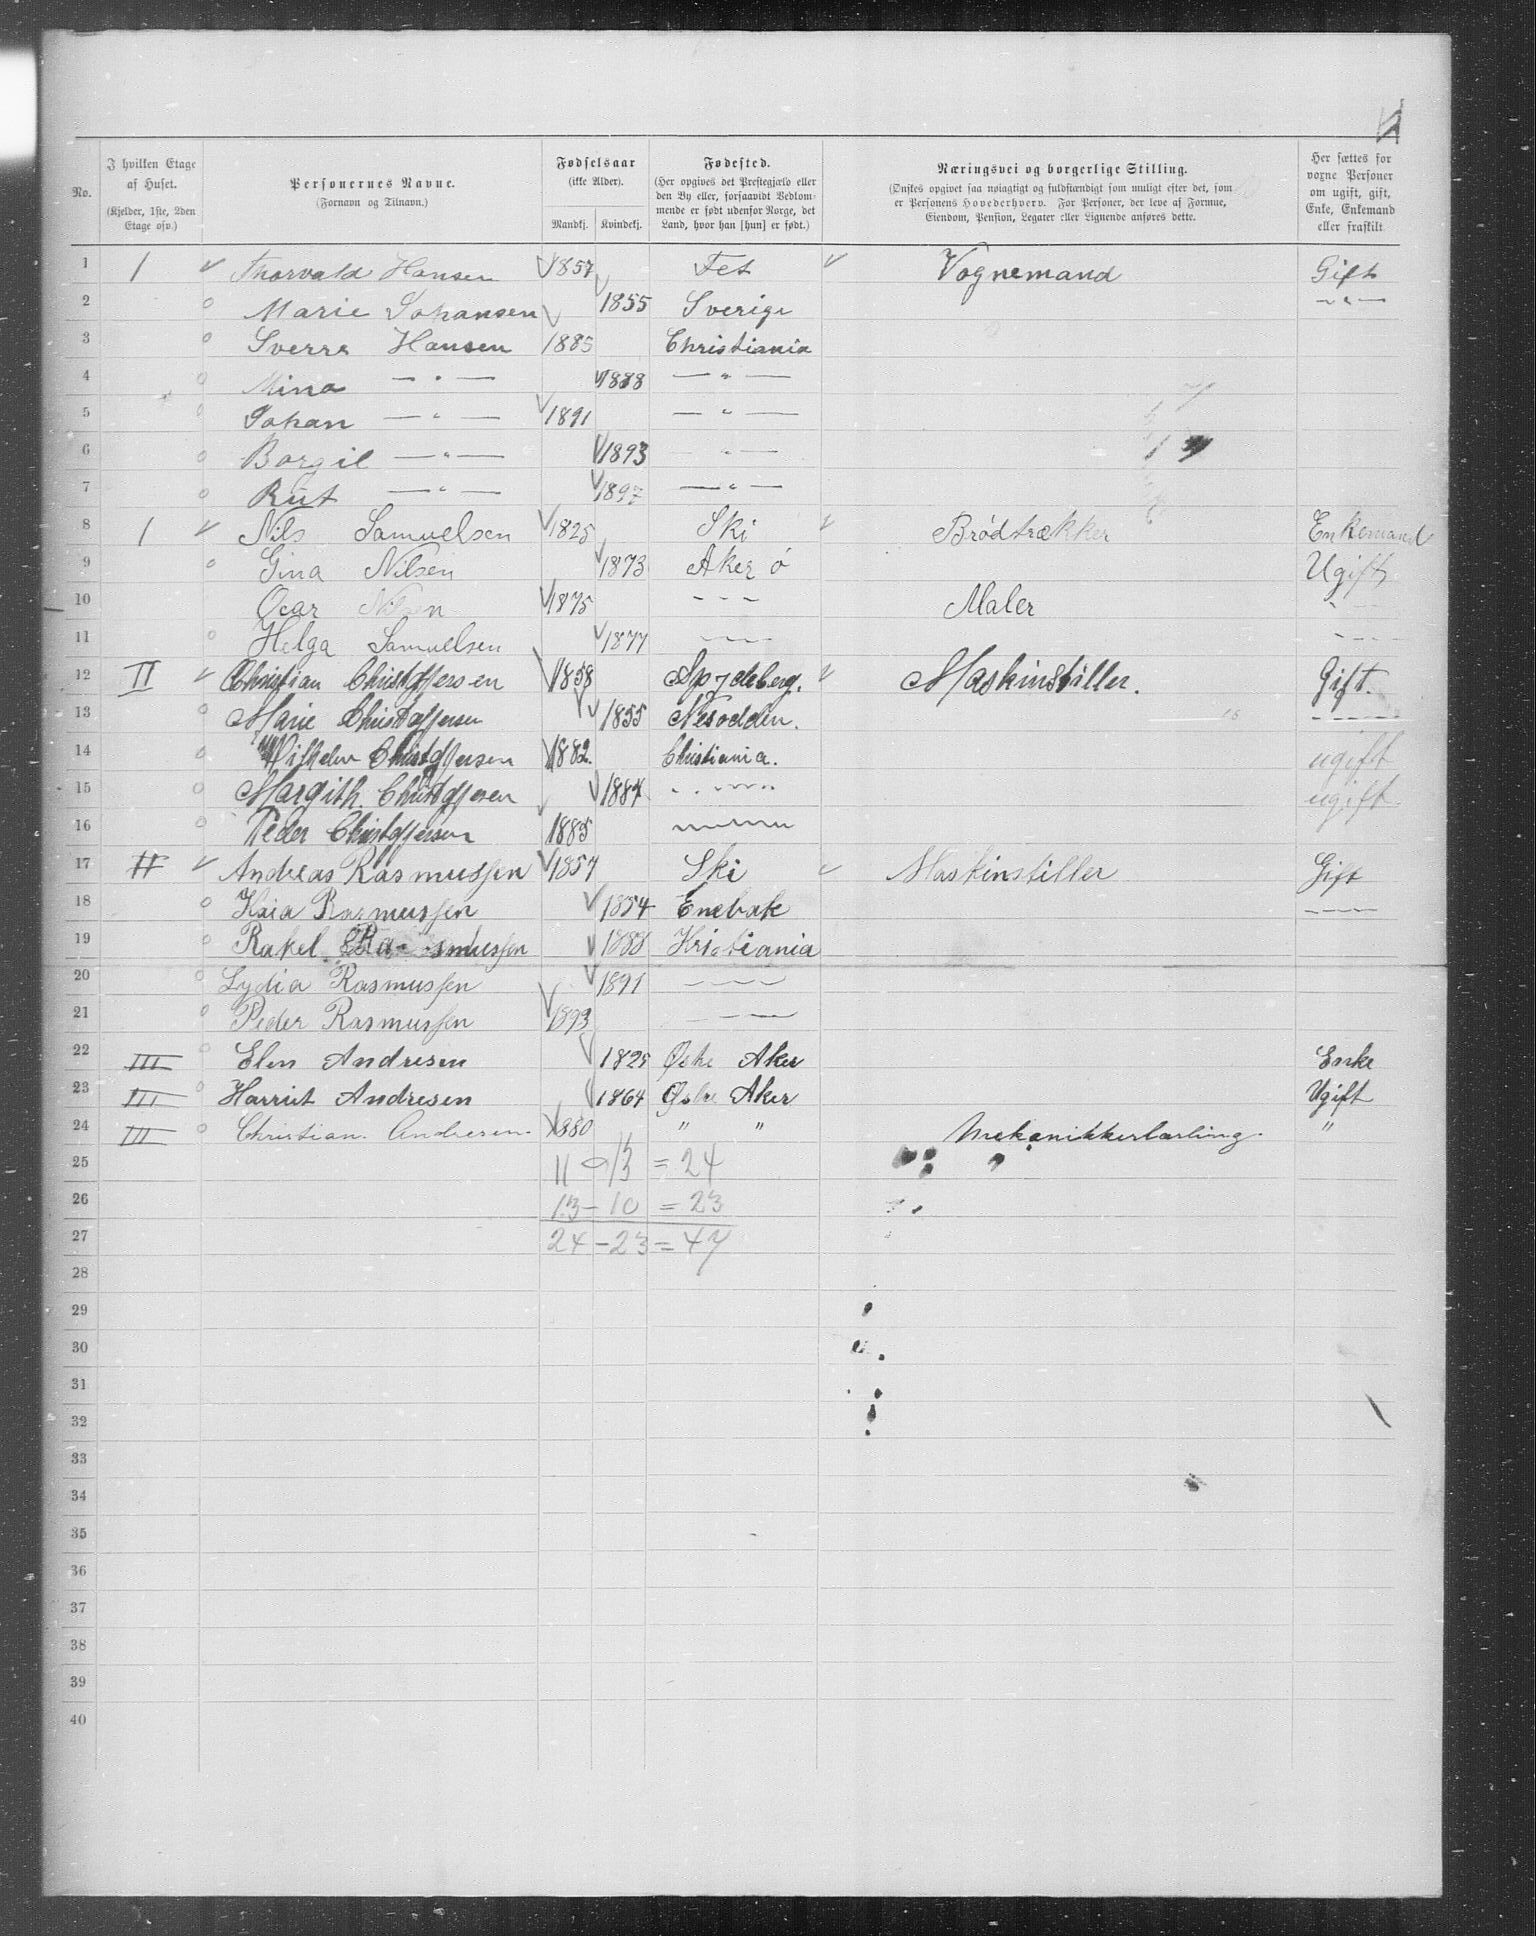 No.
I hvilken Etage af Huset. (Kjelder, 1ste, 2den Etage osv.)
Personernes Navne. (Fornavn og Tilnavn.)
Fødselsaar (ikke Alder). Mandkj. Kvindekj.
Fødested. (Her opgives det Prestegjæld eller den By eller, forsaavidt Vedkommende er født udenfor Norge, det Land, hvor han [hun] er født.)
Næringsvei og borgerlige Stilling. (Ønskes opgivet saa nøiagtigt og fuldstændigt som muligt efter det, som er Personens Hovederhverv. For Personer, der leve af Formue, Eiendom, Pension, Legater eller Lignende anføres dette.
Her sættes for voxne Personer om ugift, gift, Enke, Enkemand eller fraskilt
1 I Thorvald Hansen 1857 Fet Vognemand Gift
2 Marie Johansen 1855 Sverige — " —
3 Sverre Hansen 1885 Christiania
4 Mina — " — 1888 — " —
5 Johan — " — 1891 — " —
6 Borgil — " — 1893 — " —
7 Rut — " — 1897 — " —
8 I Nils Samuelsen 1825 Ski Brødtrækker Enkemand
9 Gina Nilsen 1873 Aker ø Ugift
10 Ocar Nilsen 1875 - - - Maler - - -
11 Helga Samuelsen 1877 - - - - - - -
12 II Christian Christoffersen 1858 Spydeberg. Maskinstiller. Gift.
13 Marie Christoffersen 1855 Nesodden. - - - - -
14 Vilhelm Christoffersen 1882. Christiania. ugift
15 Margith Christoffersen 1884 - - - - ugift
16 Peder Christoffersen 1885 - - - -
17 II Andreas Rasmussen 1857 Ski Maskinstiller Gift
18 Haia Rasmussen 1854 Enebak - - - -
19 Rakel Rasmussen 1888 Kristiania
20 Lydia Rasmussen 1891 - - - -
21 Peder Rasmussen 1893 - - - -
22 III Elen Andresen 1825 Østre Aker Enke
23 III Harriet Andresen 1864 Østre Aker Ugift
24 III Christian Andresen 1880 " " Mekanikkerlærling. "
25 11 - 13 = 24
26 13 - 10 = 23
27 24 - 23 = 47
28
29
30
31
32
33
34
35
36
37
38
39
40